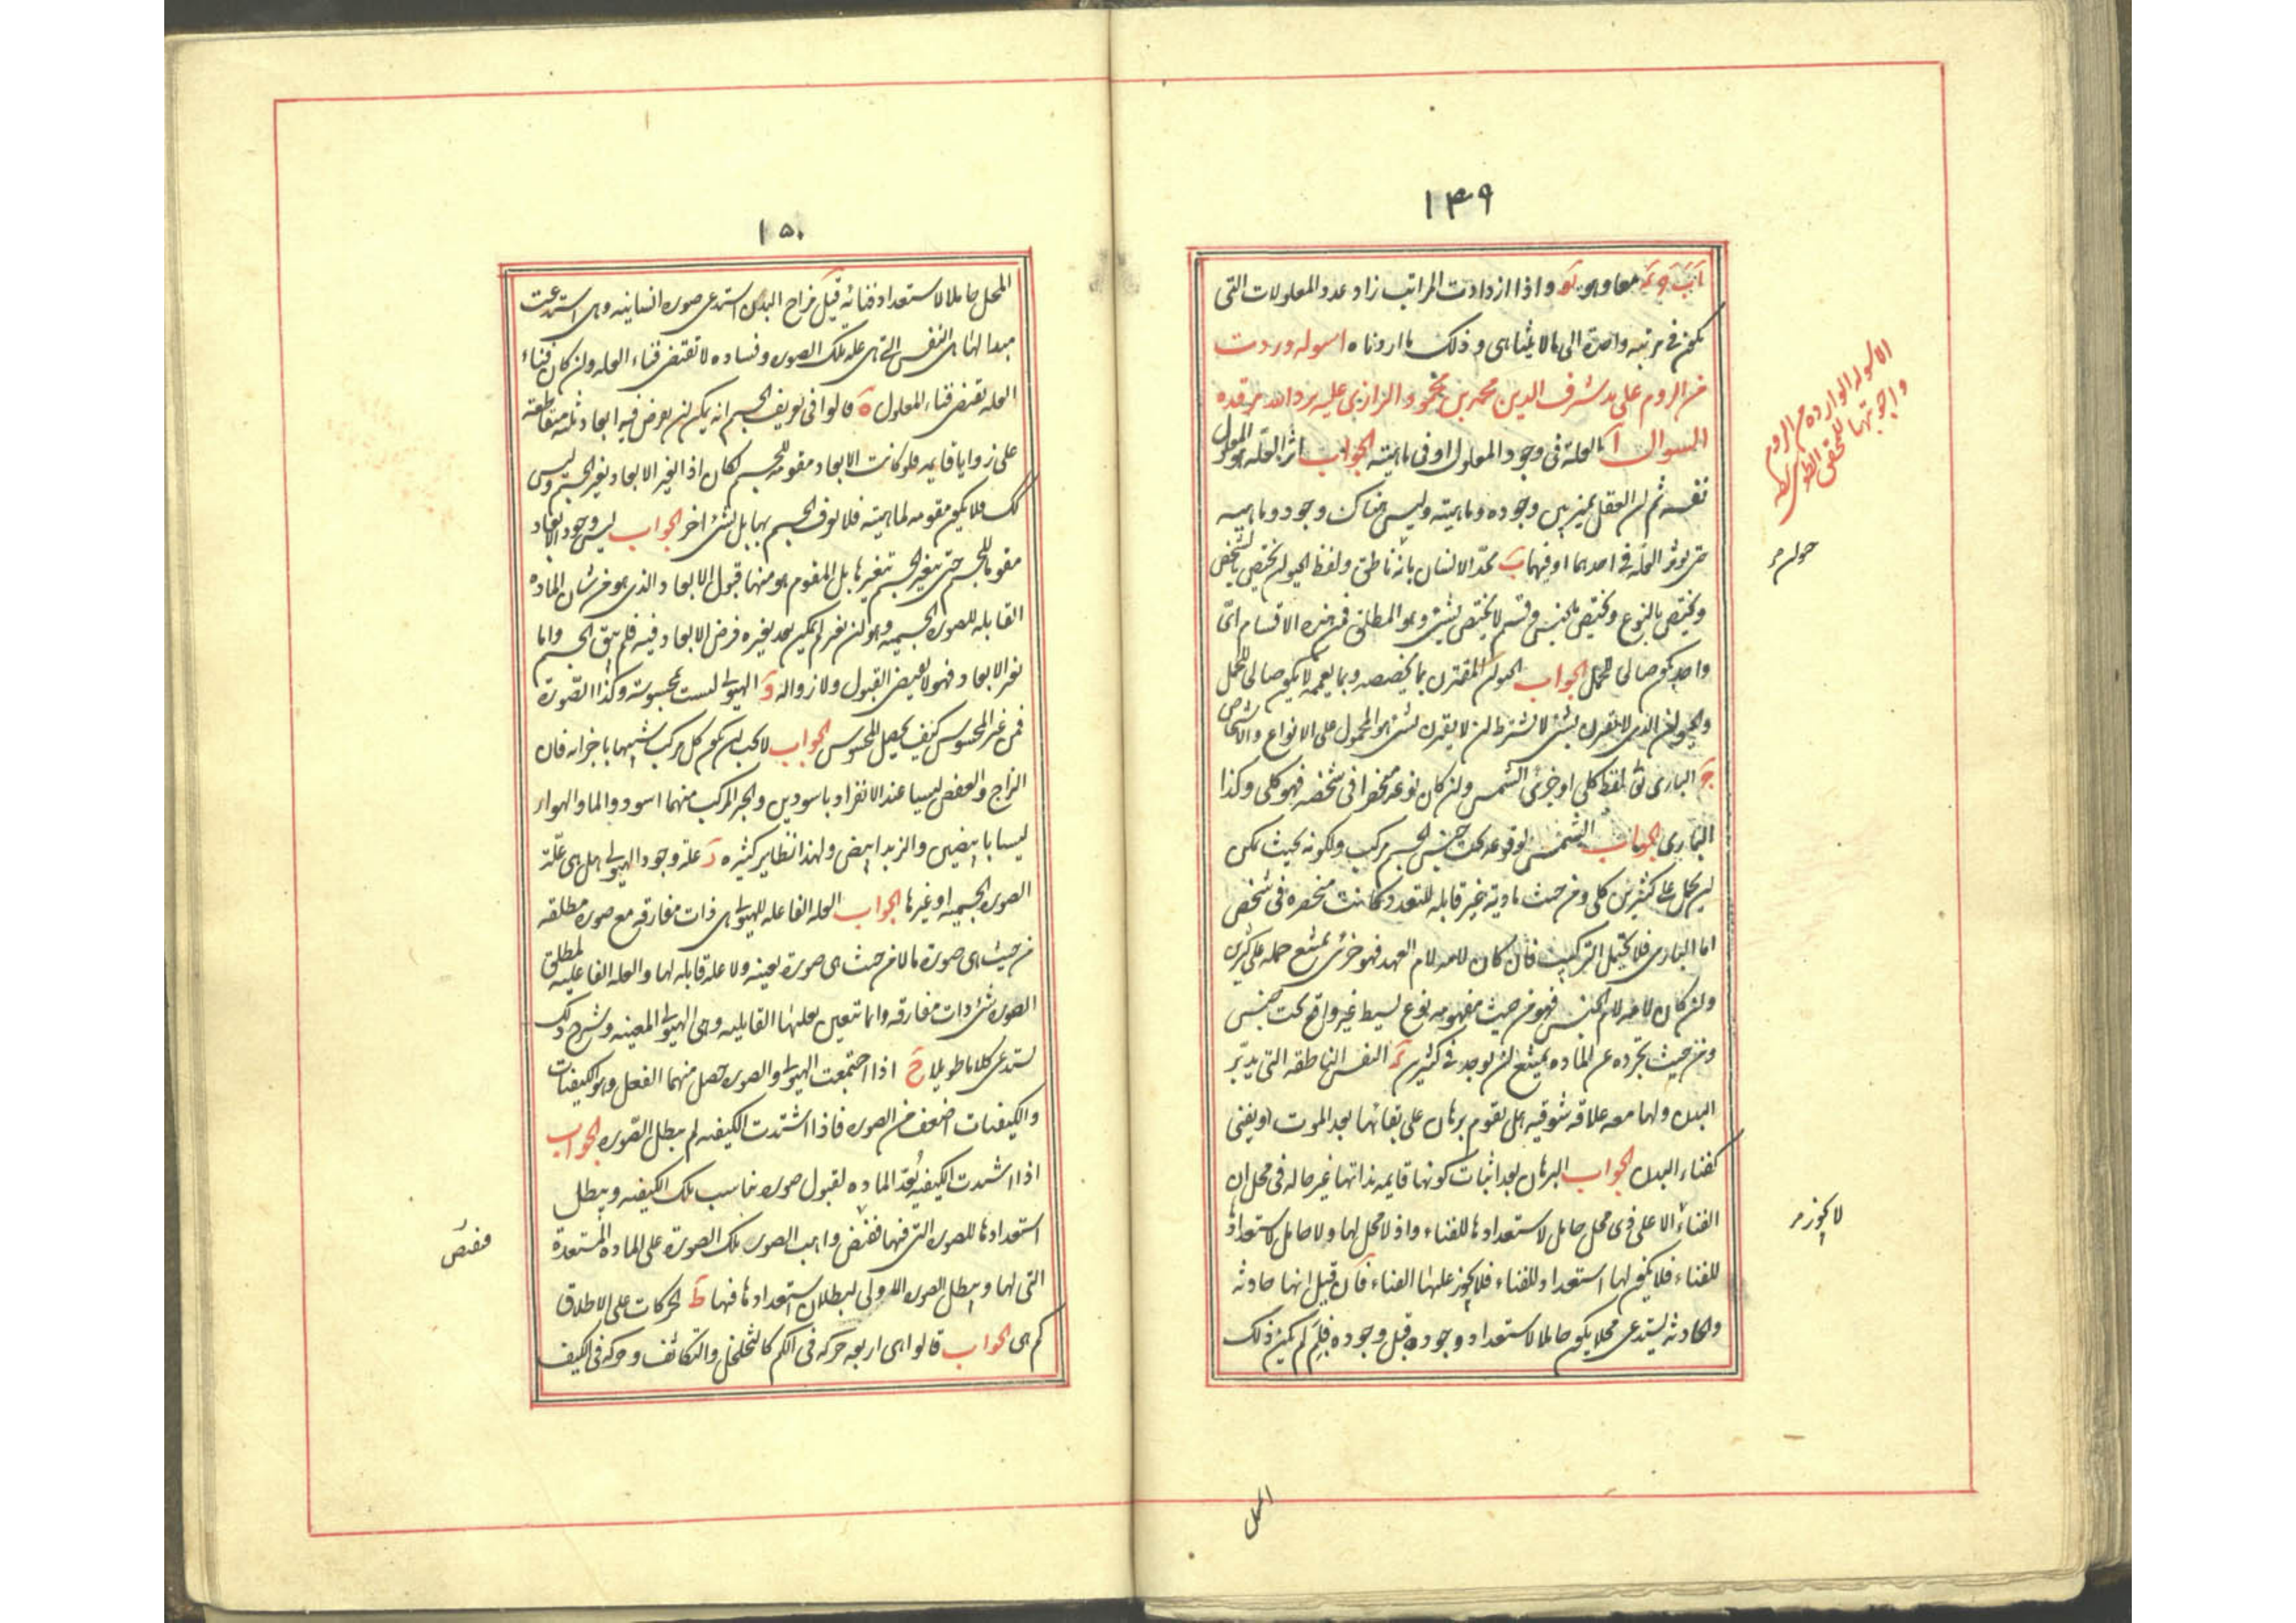 ١٤٩
معا وهو واذا ازدادت المراتب زاد عدد المعلولات التى
يكون فى مرتبة واحدة الى ما لا يتناهى وذلك ما اردناه اسوله وردت
من الروم على يد شرف الدين محمد بن محمود الرازى عليه برد الله مرقده
السوال آ العلة فى وجود المعلول او فى ماهيته الجواب اثر العلة هو المعلول
نفسه ثم ان العقل يميز بين وجوده وماهيته وليس هناك وجود وماهيه
حتى يوثر العلة فى احدهما او فيهما ب نحد الانسان بانه ناطق ولفظ الحيوان يختص بالشخص
ويختص بالنوع ويختص بالجنس وقسم لا يختص بشئ وهو المطلق فمن هذه الاقسام اى
واحد يكون صالحا للحمل الجواب الحيوان المقترن بما يخصصه وبما يعممه لا يكون صالحا للحمل
والحيوان الذى لا يقترن بشئ لا بشرط ان لا يقترن بشئ هو المحمول على الانواع والاشخاص
ج البارى تع لفظ كلى او جزئى الشمس وان كان نوعه منحصرا فى شخصه فهو كلى وكذا
البارى الجواب الشمس لوقوعه تحت جنس الجسم مركب ولكونه بحيث يمكن
ان يحمل على كثيرين كلى ومن حيث ماديته غير قابله للتعدد كانت منحصره فى شخص
اما البارى فلا يحتمل التركيب فان كان لامه لام العهد فهو جزئى يمتنع حمله على كثيرين
وان كان لامه لام الجنس فهو من حيث مفهومه نوع بسيط غير واقع تحت جنس
ومن حيث تجرده عن الماده يمتنع ان يوجد فى كثيرين د النفس الناطقه التى يدبّر
البدن ولها معه علاقه شوقيه هل يقوم برهان على بقائها بعد الموت او يفنى
كفناء البدن الجواب البرهان بعد اثبات كونها قايمه بذاتها غير حاله فى محل ان
الفناء الا على ذى محل حامل لاستعدادها للفناء واذ لا محل لها ولا حامل لاستعدادها
للفناء فلا يكون لها استعداد للفناء فلا يجوز عليها الفناء فان قيل انها حادثه
والحادثه يستدعى محلا يكون حاملا لاستعداد وجوده قبل وجوده فلم لم يكن ذلك
الاسوله الوارده من الروم
واجوبتها للمحقق الطوسى
حيوان
لا يجوز
المحل
١٥٠
المحل حاملا لاستعداد فنائه قيل مزاج البدن استدعى صوره انسانيه وهى استدعت
مبدا لها هى النفس التى هى علة تلك الصوره وفساده لا تقتضى فناء العله وان كان فناء
العله يقتضى فناء المعلول ه قالوا فى تعريف الجسم انه يمكن ان يعرض فيه ابعاد ثلثه متقاطعة
على زوايا قايمه فلو كانت الابعاد مقومه للجسم لكان اذا تغير الابعاد يغير الجسم وليس
كك فلا يكون مقومه لماهيته فلا نعرف الجسم بها بل بشئ اخر الجواب ليس وجود الابعاد
مقوما للجسم حتى يتغير الجسم بتغيرها بل المقوم هو منهما قبول الابعاد والذى هو من شان الماده
القابله للصوره الجسميه وهو لن تغير لم يمكن بعد تغيره فرض الابعاد فيه فلم يبق الجسم واما
تغير الابعاد فهو لا يقتضى القبول ولا زواله و الهيولى ليست بمحسوسة وكذا الصّورة
فمن غير المحسوس كيف يحصل المحسوس الجواب لا يجب ان يكون كل مركب شبيها باجزائه فان
الزاج والعفص ليسا عند الانفراد باسودين والحبر المركب منهما اسود والماء والهواء
ليسا بابيضين والزبد ابيض ولهذا نظاير كثيره ز علة وجود الهيولى هل هى علة
الصوره الجسميه او غيرها الجواب العله الفاعله للهيولى هى ذات مفارقه مع صوره مطلقه
من حيث هى صورة ما لا من حيث هى صورة بعينه ولا علة قابله لها والعله الفاعليه لمطلق
الصوره شئ ذات مفارقه وانما تتعين بعليتها القابليه وهى الهيولى المعينه وشرح ذلك
يستدعى كلاما طويلا ح اذا اجتمعت الهيولى والصوره حصل منهما الفعل وهو الكيفيات
والكيفيات اضعف من الصوره فاذا اشتدت الكيفيه لم يبطل الصّوره الجواب
اذا اشتدت الكيفيه يُعدّ الماده لقبول صوره يناسب تلك الكيفيه ويبطل
استعدادها للصوره التى فيها فيفيض واهب الصور تلك الصورة على الماده المستعدة
التى لها ويبطل الصوره الاولى لبطلان استعدادها فيها ط الحركات على الاطلاق
كم هى الجواب قالوا هى اربعه حركه فى الكم كالتخلخل والتكاثف وحركه فى الكيف